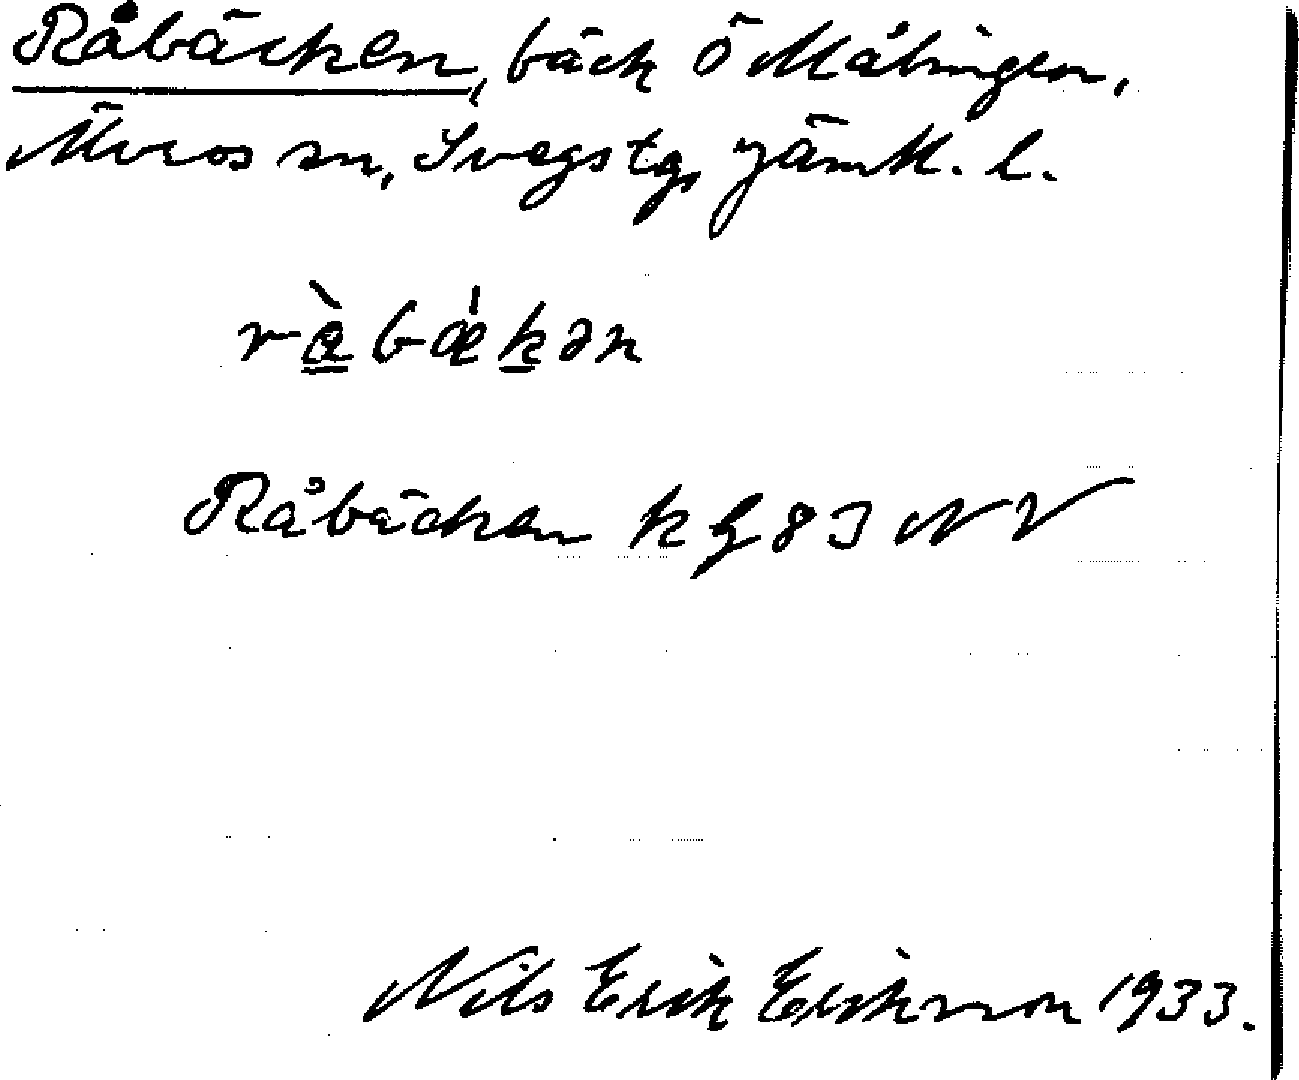 Råbäcken, bäck Ö Målingen,
Älvros sn, Svegs tg, Jämtl. l.
rà̱bǽḵən
Råbäcken kg 83 NV
Nils Erik Eriksson 1933.